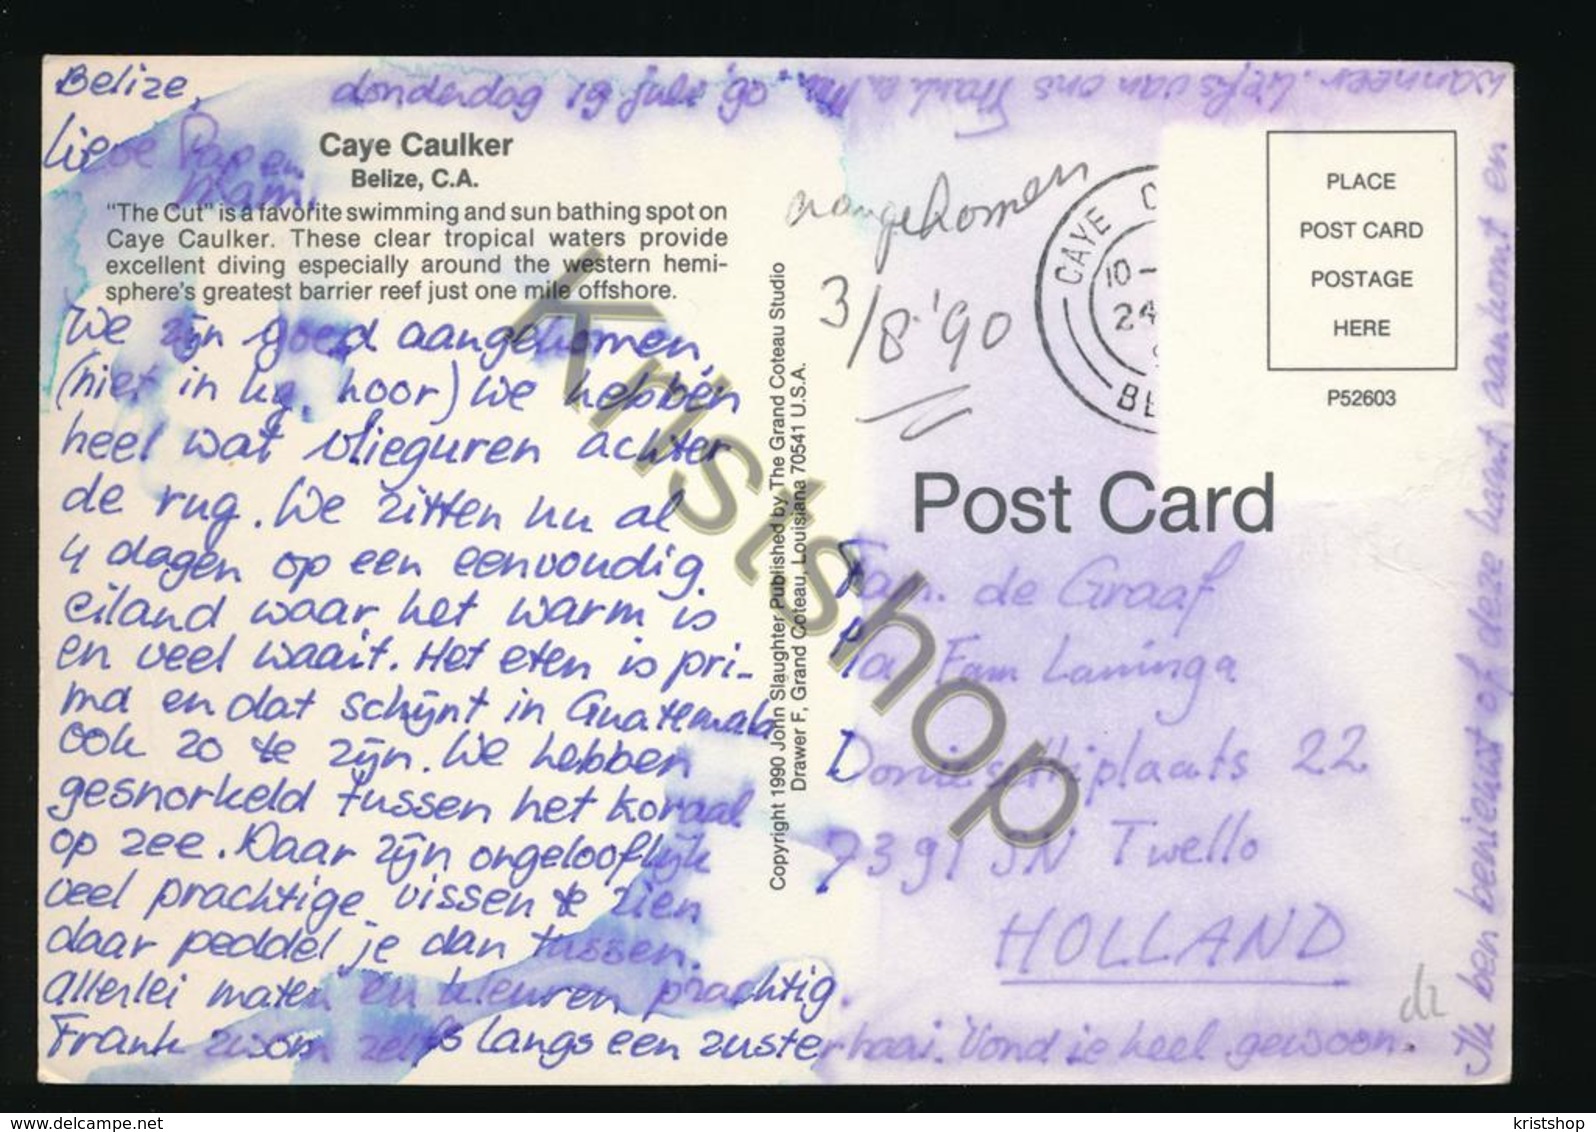 Belize, donderdag 19 juli '90
Lieve Pap en
Mam,
Caye Caulker
Belize, C.A.
"The Cut" is a favorite swimming and sun bathing spot on
Caye Caulker. These clear tropical waters provide
excellent diving especially around the western hemi-
sphere's greatest barrier reef just one mile offshore.
We zijn goed aangekomen,
(niet in kg, hoor) We hebben
heel wat vlieguren achter
de rug. We zitten nu al
4 dagen op een eenvoudig
eiland waar het warm is
en veel waait. Het eten is pri-
ma en dat schijnt in Guatemala
ook zo te zijn. We hebben
gesnorkeld tussen het koraal
op zee. Daar zijn ongelooflijk
veel prachtige vissen te zien
daar peddel je dan tussen.
allerlei maten en kleuren prachtig.
Frank zwom zelfs langs een zusterhaai. Vond ie heel gewoon.
Ik ben benieuwd of deze kaart aankomt en
wanneer. Liefs van ons Frank en
Copyright 1990 John Slaughter Published by The Grand Coteau Studio
Drawer F, Grand Coteau, Louisiana 70541 U.S.A.
aangekomen
3/8 '90
CAYE C
10-
24
BE
PLACE
POST CARD
POSTAGE
HERE
P52603
Post Card
Fam. de Graaf
p/a Fam Lamminga
22
7391 Twello
HOLLAND
dz
Kristshop
www.delcampe.net
kristshop